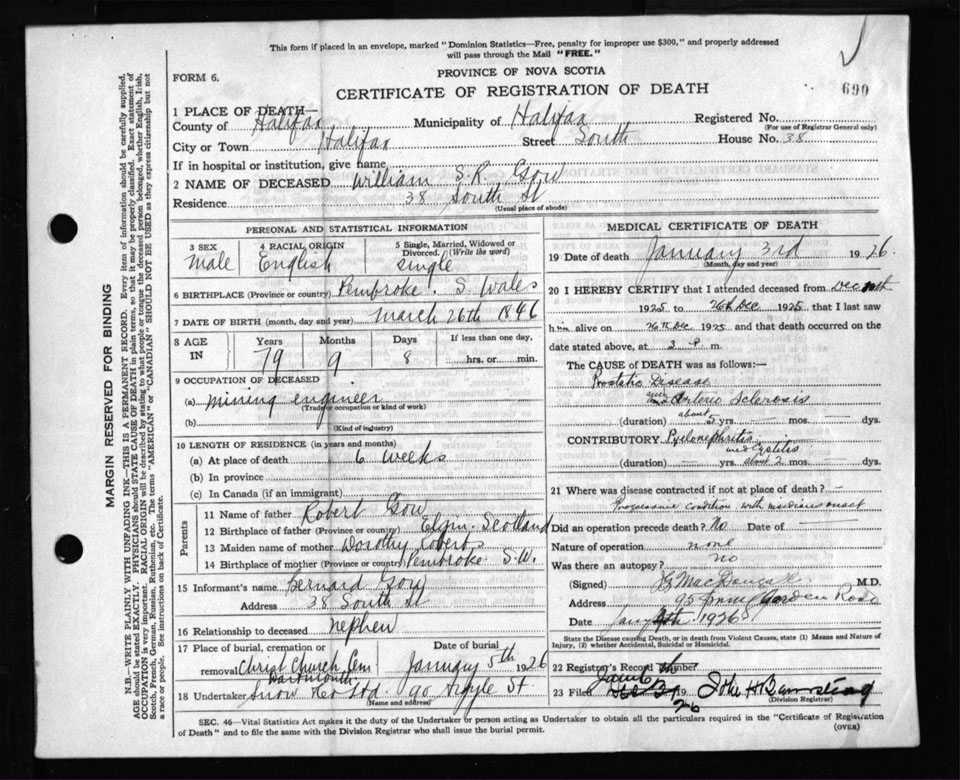 This form if placed in an envelope, marked "Dominion Statistics—Free, penalty for improper use $300," and properly addressed
will pass through the Mail "FREE."
FORM 6.
PROVINCE OF NOVA SCOTIA
CERTIFICATE OF REGISTRATION OF DEATH
690
1 PLACE OF DEATH—
County of Halifax Municipality of Halifax Registered No.
(For use of Registrar General only)
City or Town Halifax Street South House No. 38
If in hospital or institution, give name
2 NAME OF DECEASED William S.R. Gow
Residence 38 South St
(Usual place of abode)
PERSONAL AND STATISTICAL INFORMATION
3 SEX Male
4 RACIAL ORIGIN English
5 Single, Married, Widowed or Divorced. (Write the word) Single
6 BIRTHPLACE (Province or country) Pembroke, S. Wales
7 DATE OF BIRTH (month, day and year) March 26th 1846
8 AGE IN Years 79 Months 9 Days 8 If less than one day, hrs. or min.
9 OCCUPATION OF DECEASED
(a) Mining engineer
(Trade or occupation or kind of work)
(b)
(Kind of industry)
10 LENGTH OF RESIDENCE (in years and months)
(a) At place of death 6 weeks
(b) In province
(c) In Canada (if an immigrant)
Parents
11 Name of father Robert Gow
12 Birthplace of father (Province or country) Elgin. Scotland
13 Maiden name of mother Dorothy Roberts
14 Birthplace of mother (Province or country) Pembroke S.W.
15 Informant's name Bernard Gow
Address 38 South St
16 Relationship to deceased nephew
17 Place of burial, cremation or removal Christ Church Cem Dartmouth
Date of burial January 5th 1926
18 Undertaker Snow & Co Ltd. 90 Argyle St.
(Name and address)
MEDICAL CERTIFICATE OF DEATH
19 Date of death January 3rd 1926.
(Month, day and year)
20 I HEREBY CERTIFY that I attended deceased from Dec
1925 to 26th Dec 1925 that I last saw
him alive on 26th Dec 1925 and that death occurred on the
date stated above, at 3 P. m.
The CAUSE OF DEATH was as follows:—
Prostatic Disease
and Arterio Sclerosis
(duration) about 5 yrs. mos. dys.
CONTRIBUTORY Pyelonephritis
and Cystitis
(duration) yrs. about 2 mos. dys.
21 Where was disease contracted if not at place of death?
Progressive condition with
Did an operation precede death? No Date of
Nature of operation none
Was there an autopsy? no
(Signed) MacDougall M.D.
Address 95 Spring Garden Road
Jany 4th 1926
State the Disease causing Death, or in death from Violent Causes, state (1) Means and Nature of
Injury, (2) whether Accidental, Suicidal or Homicidal.
22 Registrar's Record Number
23 Filed 19 26 John H Barnstead
(Division Registrar)
SEC. 46—Vital Statistics Act makes it the duty of the Undertaker or person acting as Undertaker to obtain all the particulars required in the "Certificate of Registration
of Death" and to file the same with the Division Registrar who shall issue the burial permit.
(OVER)
MARGIN RESERVED FOR BINDING
N.B.—WRITE PLAINLY WITH UNFADING INK—THIS IS A PERMANENT RECORD. Every item of information should be carefully supplied.
AGE should be stated EXACTLY. PHYSICIANS should STATE CAUSE OF DEATH in plain terms, so that it may be properly classified. Exact statement of
OCCUPATION is very important. RACIAL ORIGIN will be described by stating to what people or tongue the deceased person belonged, whether English, Irish,
Scotch, French, German, Russian, Ruthenian, etc. The terms "AMERICAN" or "CANADIAN" SHOULD NOT BE USED as they express citizenship but not
a race or people. See instructions on back of Certificate.